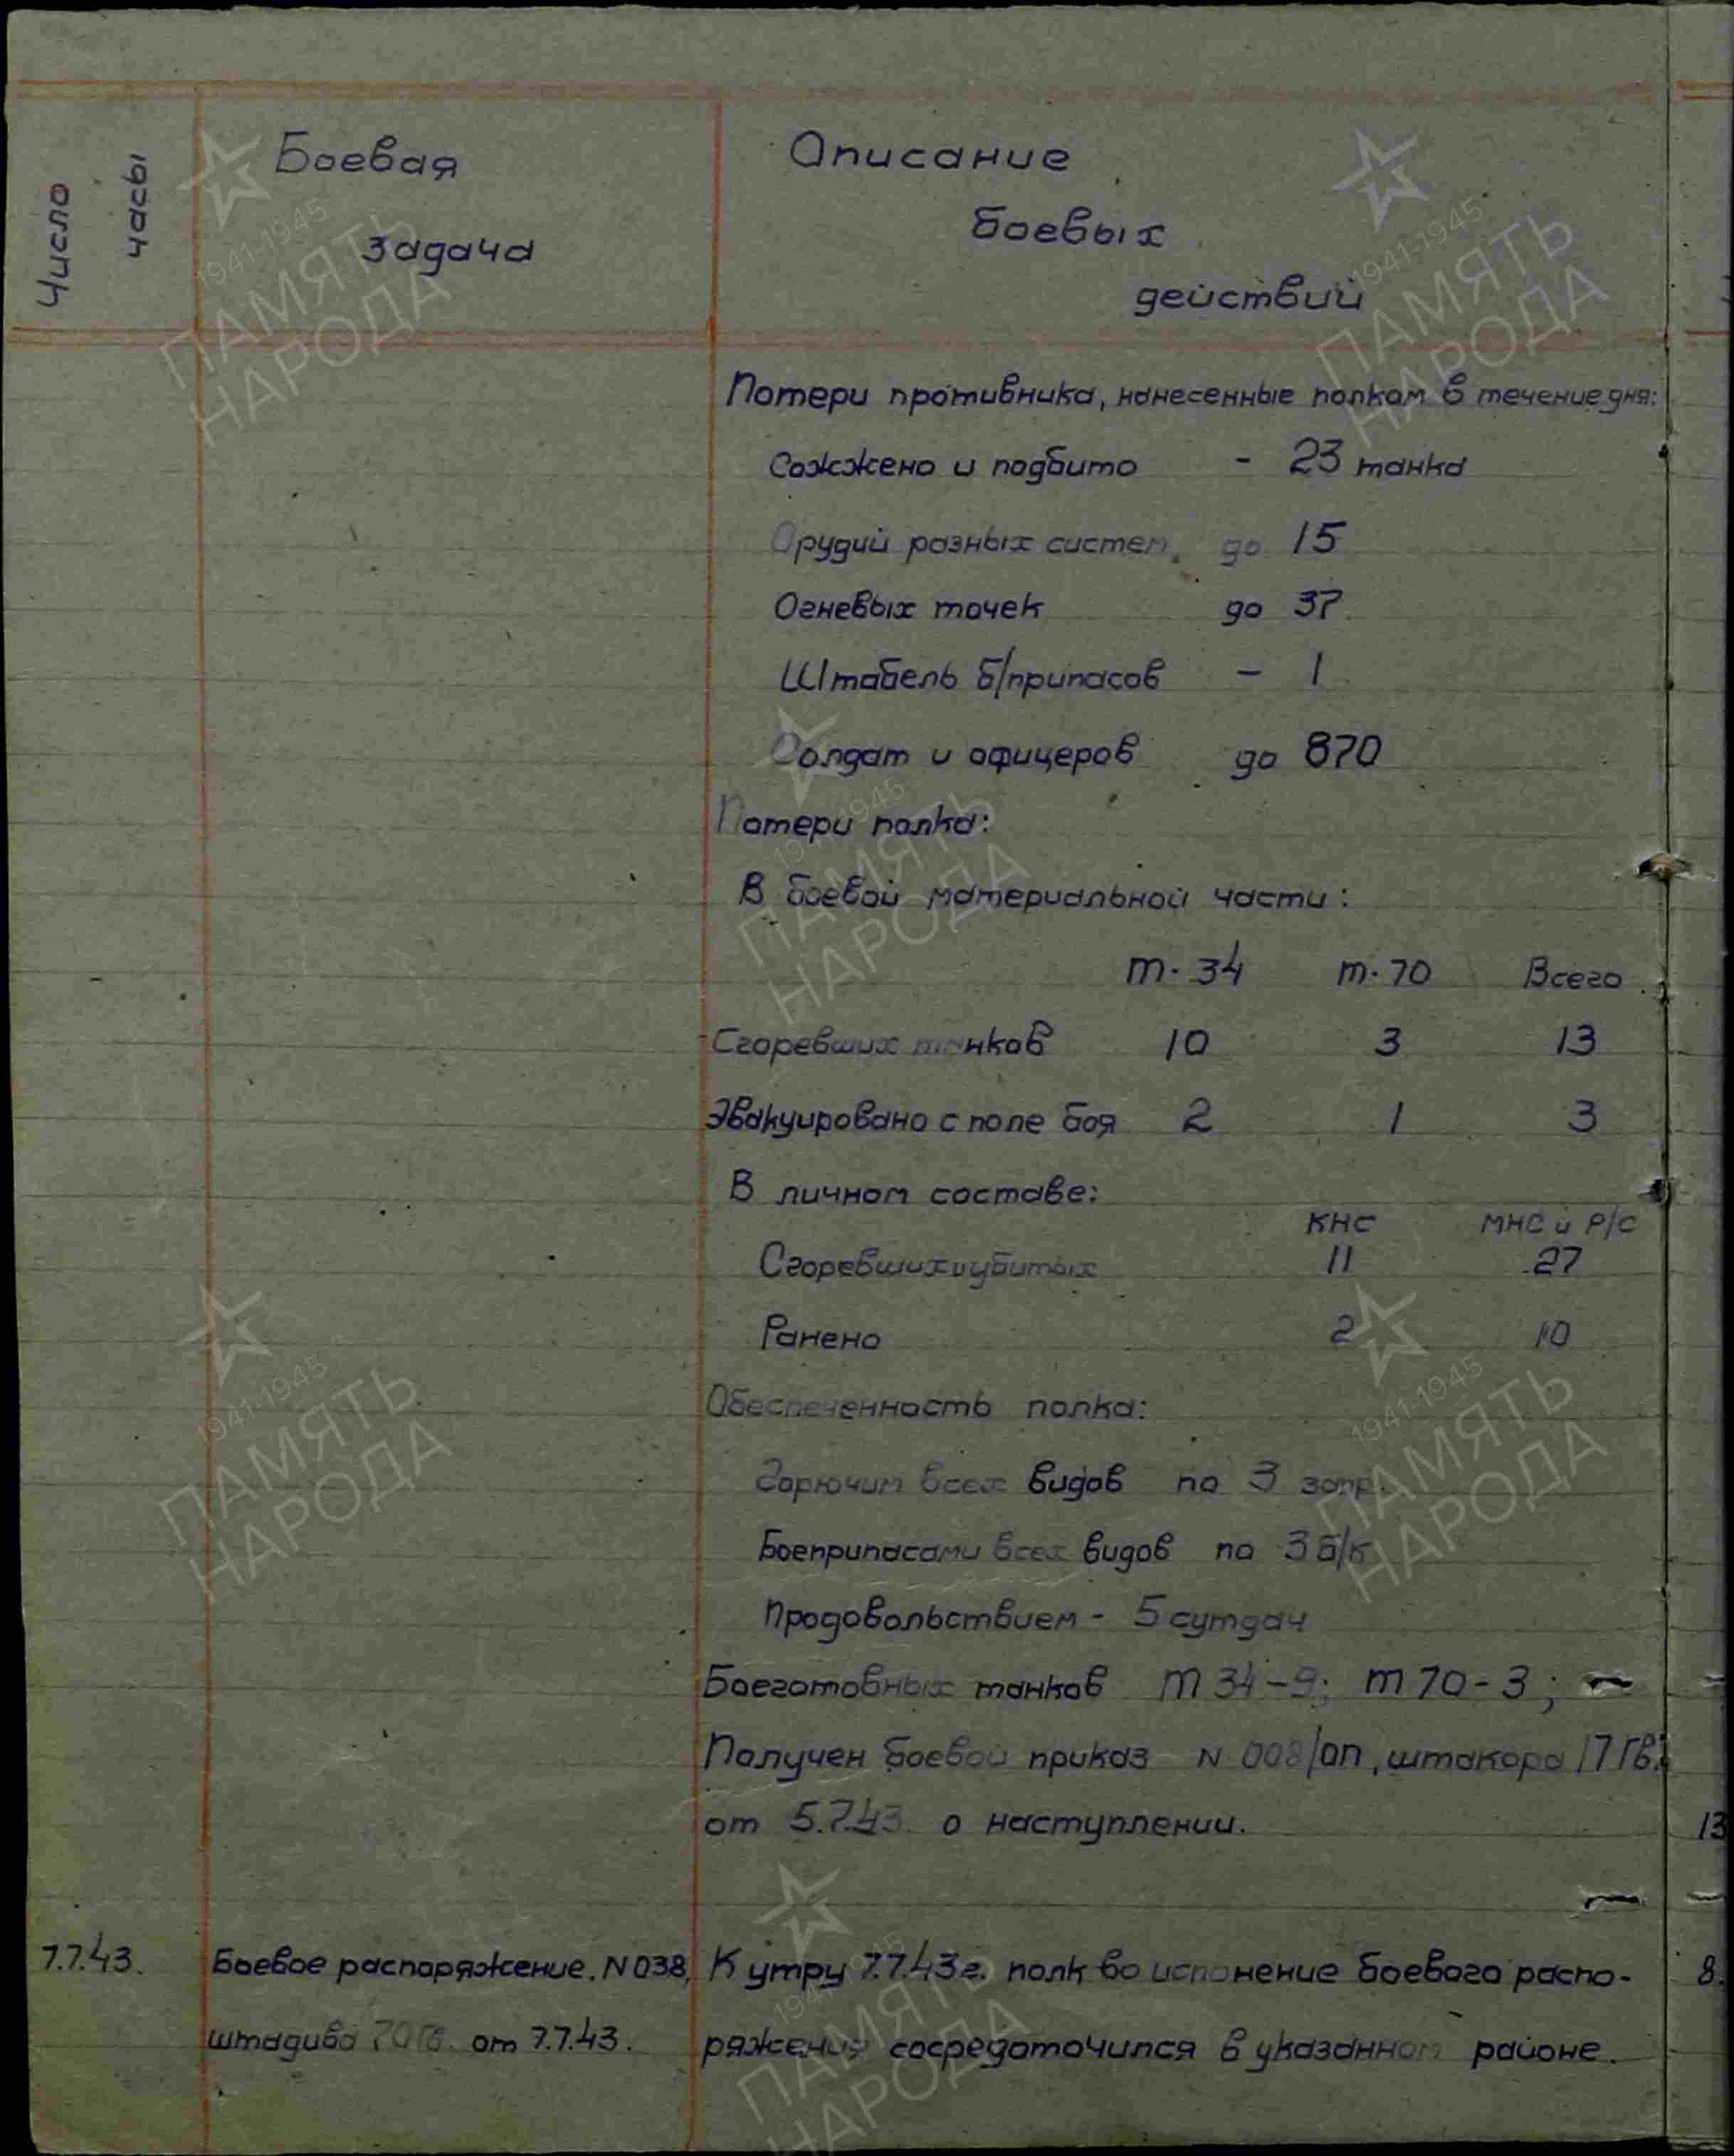 Число
часы
Боевая
задача
Описание
боевых
действий
Потери противника, нанесенные полком в течение дня:
Сожжено и подбито - 23 танка
Орудий разных систем до 15
Огневых точек до 37
Штабель б/припасов - 1
Солдат и офицеров до 870
Потери полка:
В боевой материальной части:
т-34 т-70 Всего
Сгоревших танков 10 3 13
Эвакуировано с поле боя 2 1 3
В личном составе:
КНС МНС и Р/С
Сгоревших и убитых 11 27
Ранено 2 10
Обеспеченность полка:
Горючим всех видов по 3 запр.
Боеприпасами всех видов по 3 б/к
Продовольствием - 5 сутдач
Боеготовных танков т 34-9; т 70-3;
Получен боевой приказ N 008/оп, штакора 17 Гв.
от 5.7.43. о наступлении.
13
7.7.43. Боевое распоряжение. N 038, К утру 7.7.43г. полк во испонение боевого распо-
8.
штадива 70 Гв. от 7.7.43. ряжения сосредоточился в указанном районе.
1941-1945
ПАМЯТЬ
НАРОДА
1941-1945
ПАМЯТЬ
НАРОДА
1941-1945
ПАМЯТЬ
НАРОДА
1941-1945
ПАМЯТЬ
НАРОДА
1941-1945
ПАМЯТЬ
НАРОДА
1941-1945
ПАМЯТЬ
НАРОДА